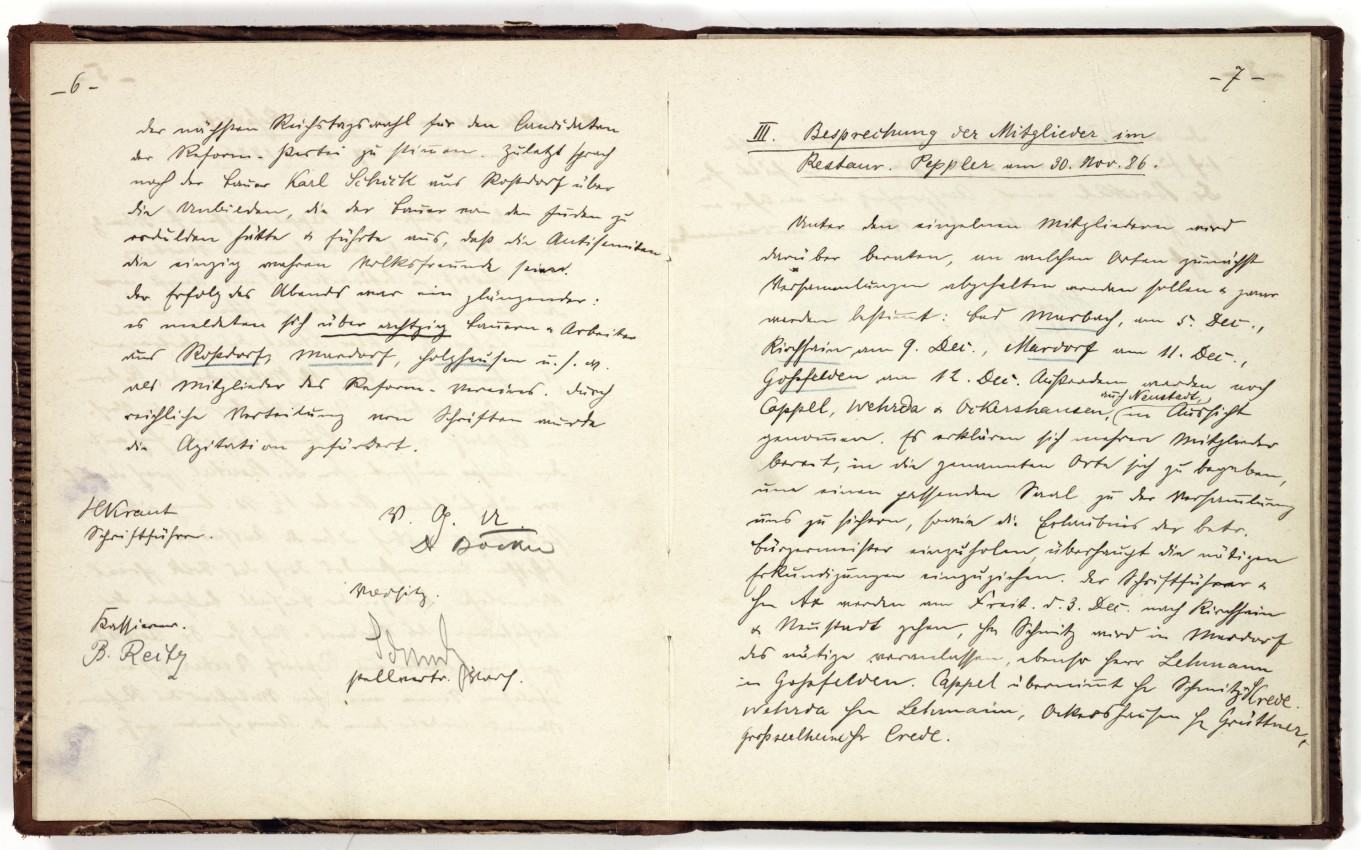 - 6 -
der nächsten Reichstagswahl für den Candidaten
der Reform-Partei zu stimmen. Zuletzt sprach
noch der Bauer Karl Schück aus Roßdorf über
die Unbilden, die der Bauer von den Juden zu
erdulden hätte & führte aus, daß die Antisemiten
die einzig wahren Volksfreunde seien.
Der Erfolg des Abends war ein glänzender:
es meldeten sich über achtzig Bauern & Arbeiter
aus Roßdorf, Mardorf, Holzhausen u. s. w.
als Mitglieder des Reform-Vereins. Durch
reichliche Verteilung von Schriften wurde
die Agitation gefördert.
HKrant
Schriftführer.
V. G. U.
Dr
Vorsitz.
Kassierer.
B. Reitz
stellvertr. Vors.
- 7 -
III. Besprechung der Mitglieder im
Restaur. Peppler am 30. Nov. 86.
Unter den einzelnen Mitgliedern wird
darüber beraten, an welchen Orten zunächst
Versammlungen abgehalten werden sollen & zwar
werden bestimmt: bad Marbach, am 5. Dec.,
Kirchhain am 9. Dec., Mardorf am 11. Dec.,
Goßfelden am 12. Dec. Außerdem werden noch
Cappel, Wehrda & Ockershausen, auch Neustadt, in Aussicht
genommen. Es erklären sich mehrere Mitglieder
bereit, in die genannten Orte sich zu begeben,
um einen passenden Saal zu der Versammlung
uns zu sichern, sowie die Erlaubnis der betr.
Bürgermeister einzuholen, überhaupt die nötigen
Erkundigungen einzuziehen. Der Schriftführer &
Hr werden am Freit. d. 3. Dec. nach Kirchhain
& Neustadt gehen, Hr Schmitz wird in Mardorf
das nötige veranlassen, ebenso Herr Lehmann
in Goßfelden. Cappel übernimmt Hr Schmitz & Crede.
Wehrda Hr Lehmann, Ockershausen Hr Grüttner,
Großseelheim Hr Crede.